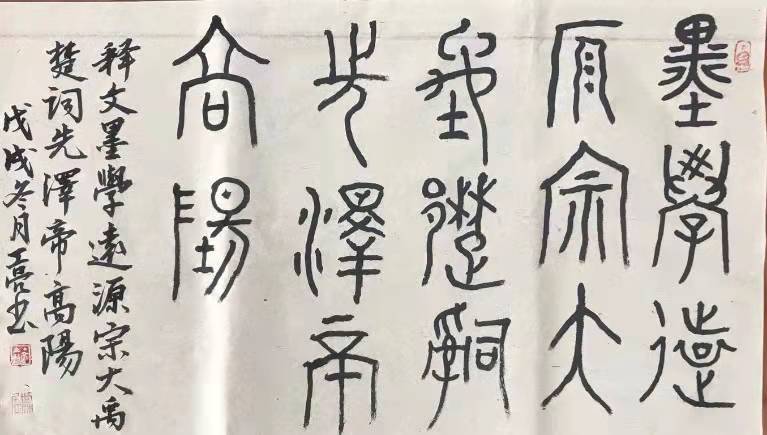 墨學遠
原宗大
禹楚詞
先澤帝
高陽
释文墨學遠源宗大禹
楚词先澤帝高陽
戊戌冬月王亮书